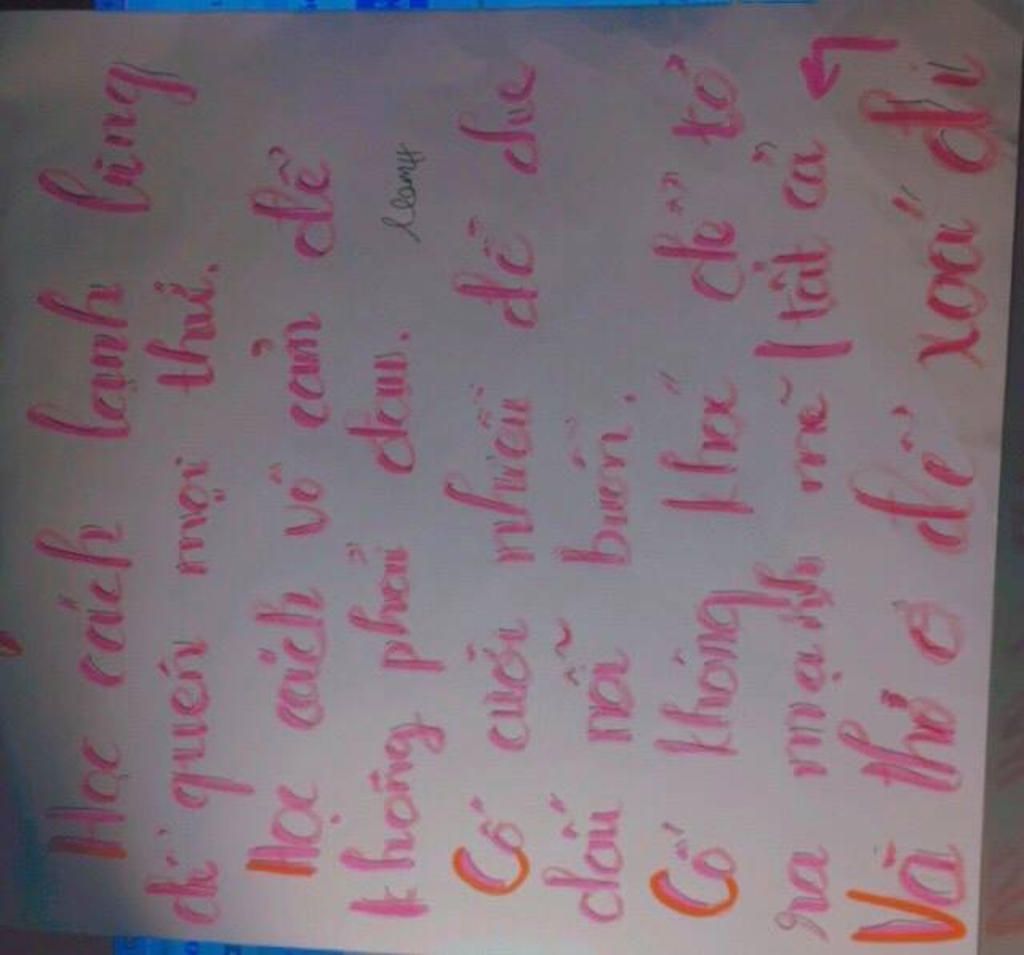 Học cách lạnh lùng
để quên mọi thứ.
Học cách vô cảm để
không phải đau.
Cố cười nhiều để che
dấu nỗi buồn.
Cố không khóc để tỏ
ra mạnh mẽ | tất cả
Và thờ ơ để xoá đi